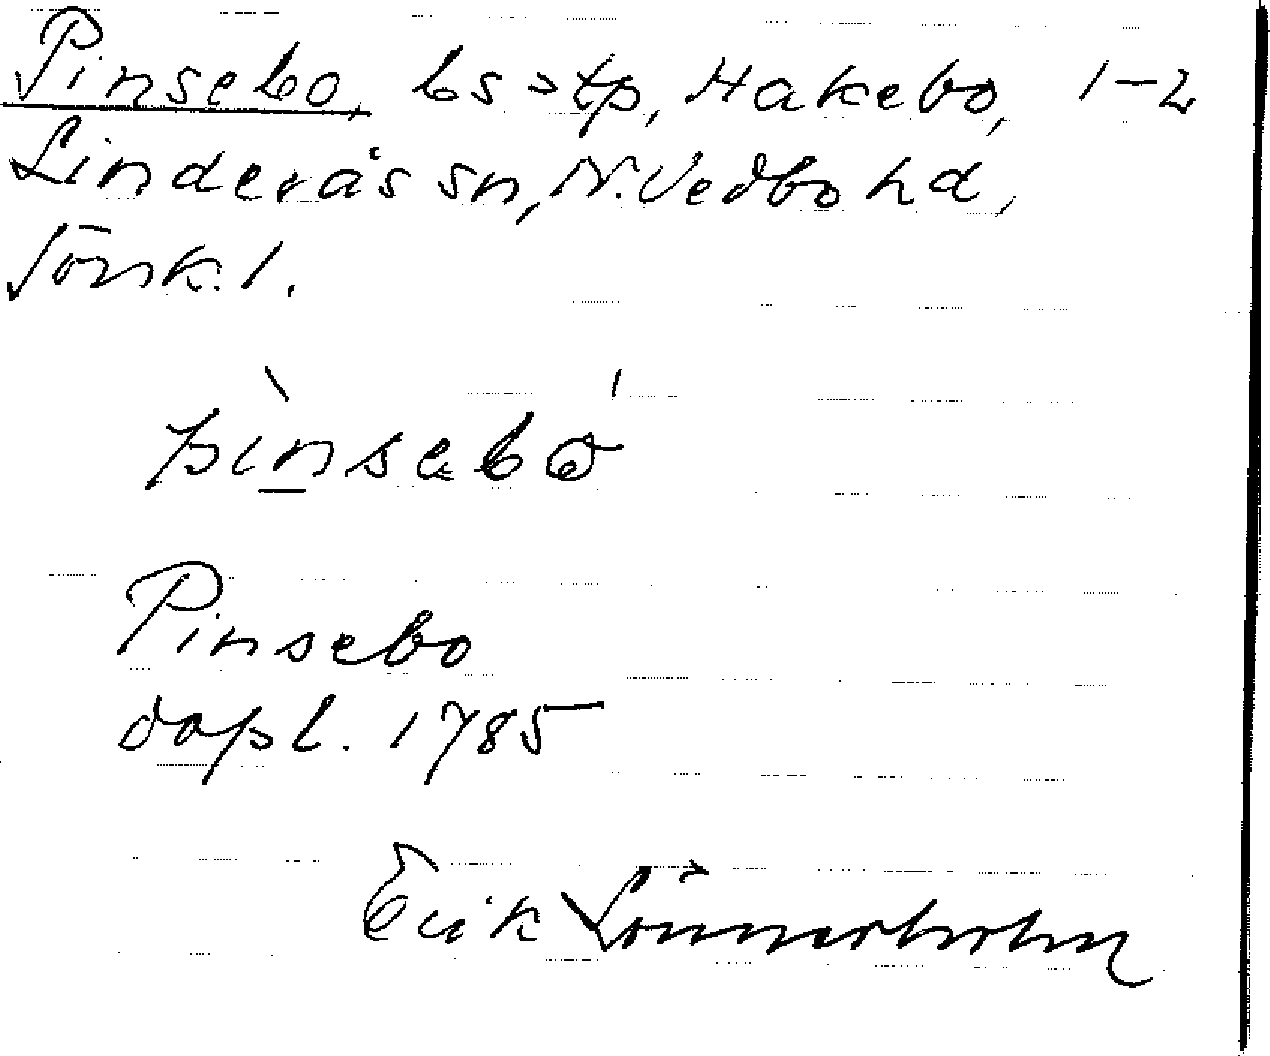 Pinsebo, bs > tp, Hakebo, 1-2
Linderås sn, N. Vedbo hd,
Jönk. l.
pìnsebó
Pinsebo
dopl. 1785
Erik Lönnerholm